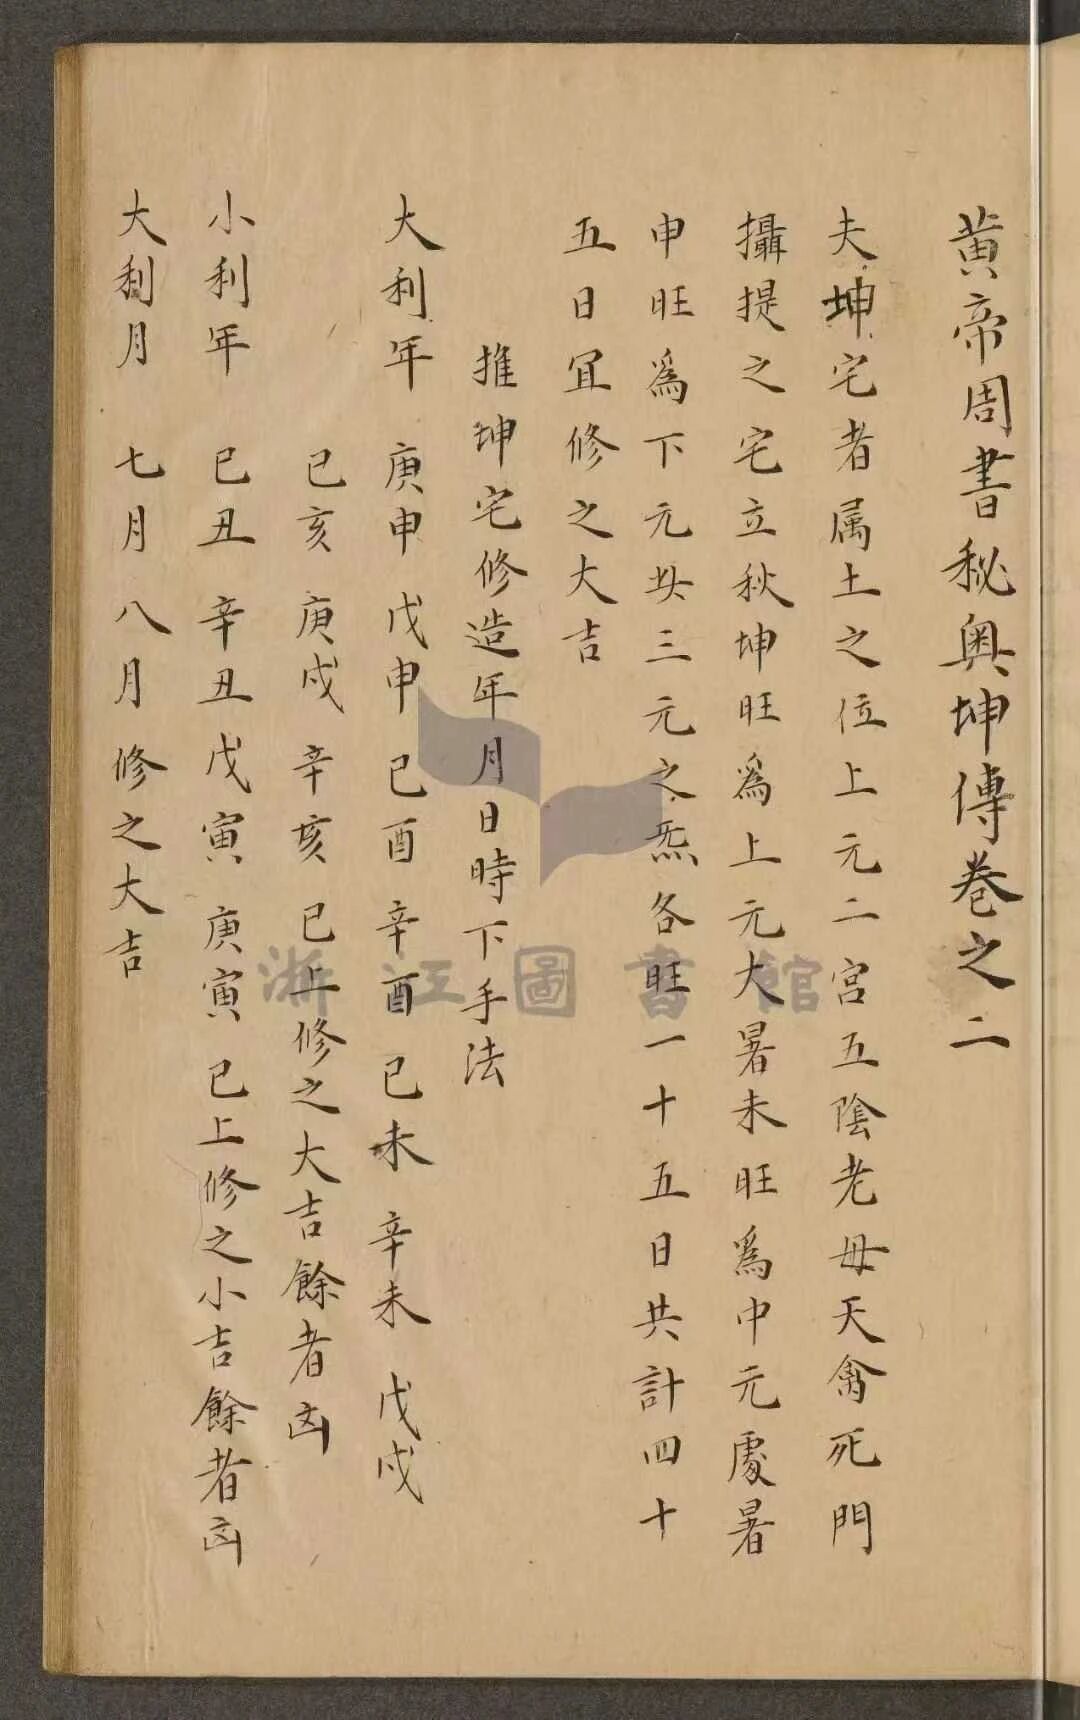 黄帝周書秘奥坤傳卷之二
夫坤宅者属土之位上元二宮五陰老母天禽死門
攝提之宅立秋坤旺為上元大暑未旺為中元處暑
申旺為下元共三元之炁各旺一十五日共計四十
五日宜修之大吉
推坤宅修造年月日時下手法
大利年 庚申 戊申 已酉 辛酉 已未 辛未 戊戌
已亥 庚戌 辛亥 已上修之大吉餘者凶
小利年 已丑 辛丑 戊寅 庚寅 已上修之小吉餘者凶
大利月 七月 八月 修之大吉
浙江圖書館